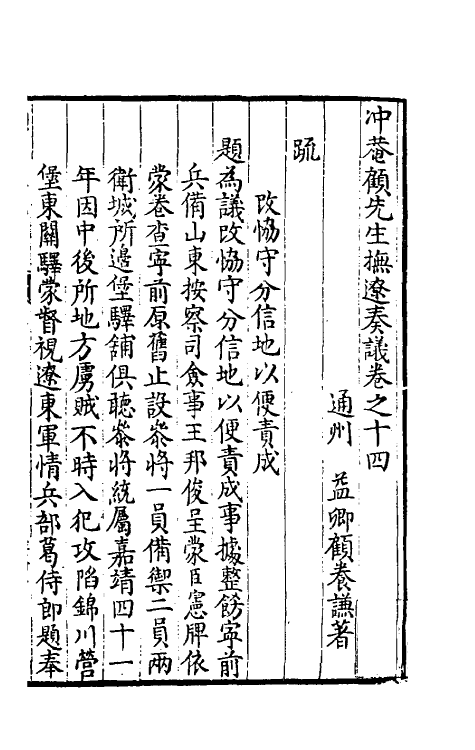 冲菴顧先生撫遼奏議卷之十四
通州 益卿顧養謙著
疏
改恊守分信地以便責成
題為議改恊守分信地以便責成事據整飭寧前
兵備山東按察司僉事王邦俊呈蒙臣憲牌依
蒙卷查寧前原舊止設叅將一員備禦二員兩
衛城所邊堡驛舖俱聽叅將統屬嘉靖四十一
年因中後所地方虜賊不時入犯攻陷錦川營
堡東關驛蒙督視遼東軍情兵部葛侍郎題奉